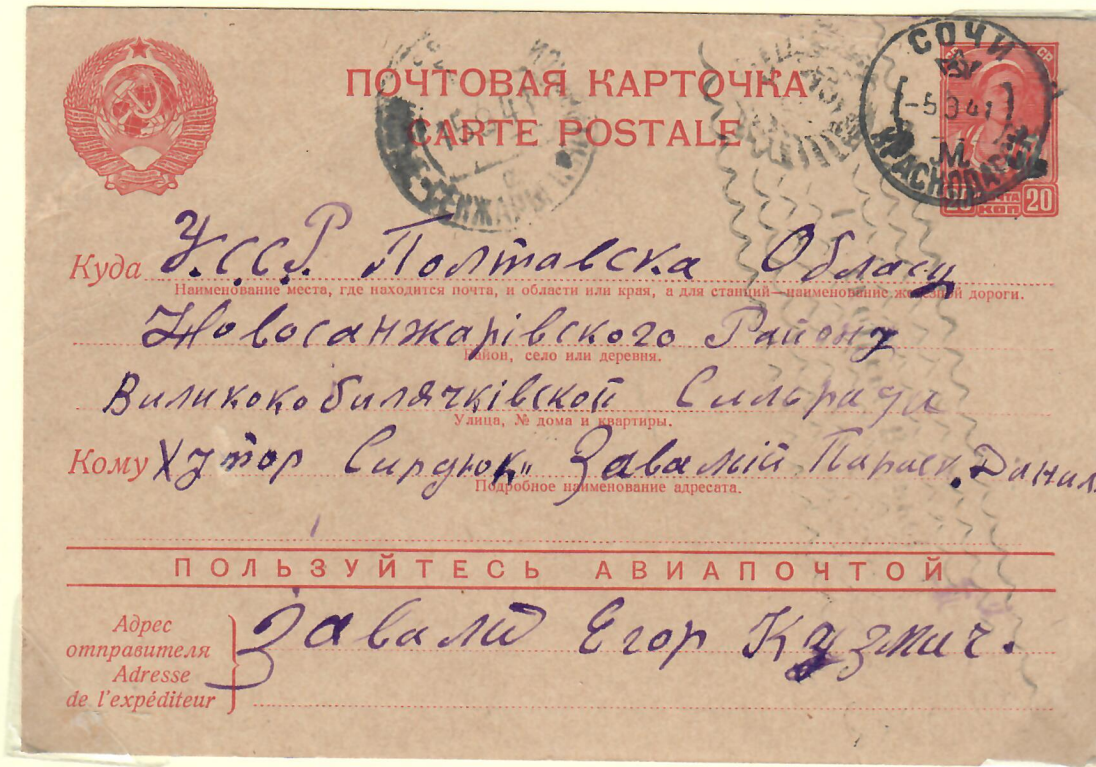 ПОЧТОВАЯ КАРТОЧКА
CARTE POSTALE
СОЧИ
-5 9 41
КРАСНОДАРСК
20 ПОЧТА КОП 20
15 9 41
СЕНЖАРЫ
Куда У.С.С.Р. Полтавска Област
Наименование места, где находится почта, и области или края, а для станций—наименование железной дороги.
Новосанжарівского Району
Район, село или деревня.
Виликокобилячківской Сильради
Улица, № дома и квартиры.
Кому Хутор Сирдюк" Завалій Параск. Данил
Подробное наименование адресата.
ПОЛЬЗУЙТЕСЬ АВИАПОЧТОЙ
Адрес отправителя
Adresse de l'expéditeur
Завалий Егор Кузмич.